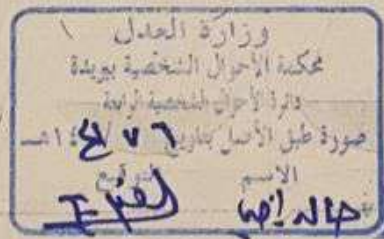 وزارة العدل
محكمة الأحوال الشخصية ببريدة
دائرة الأحوال الشخصية الرابعة
صورة طبق الأصل بتاريخ ١٤ هـ
الاسم التوقيع
خالد